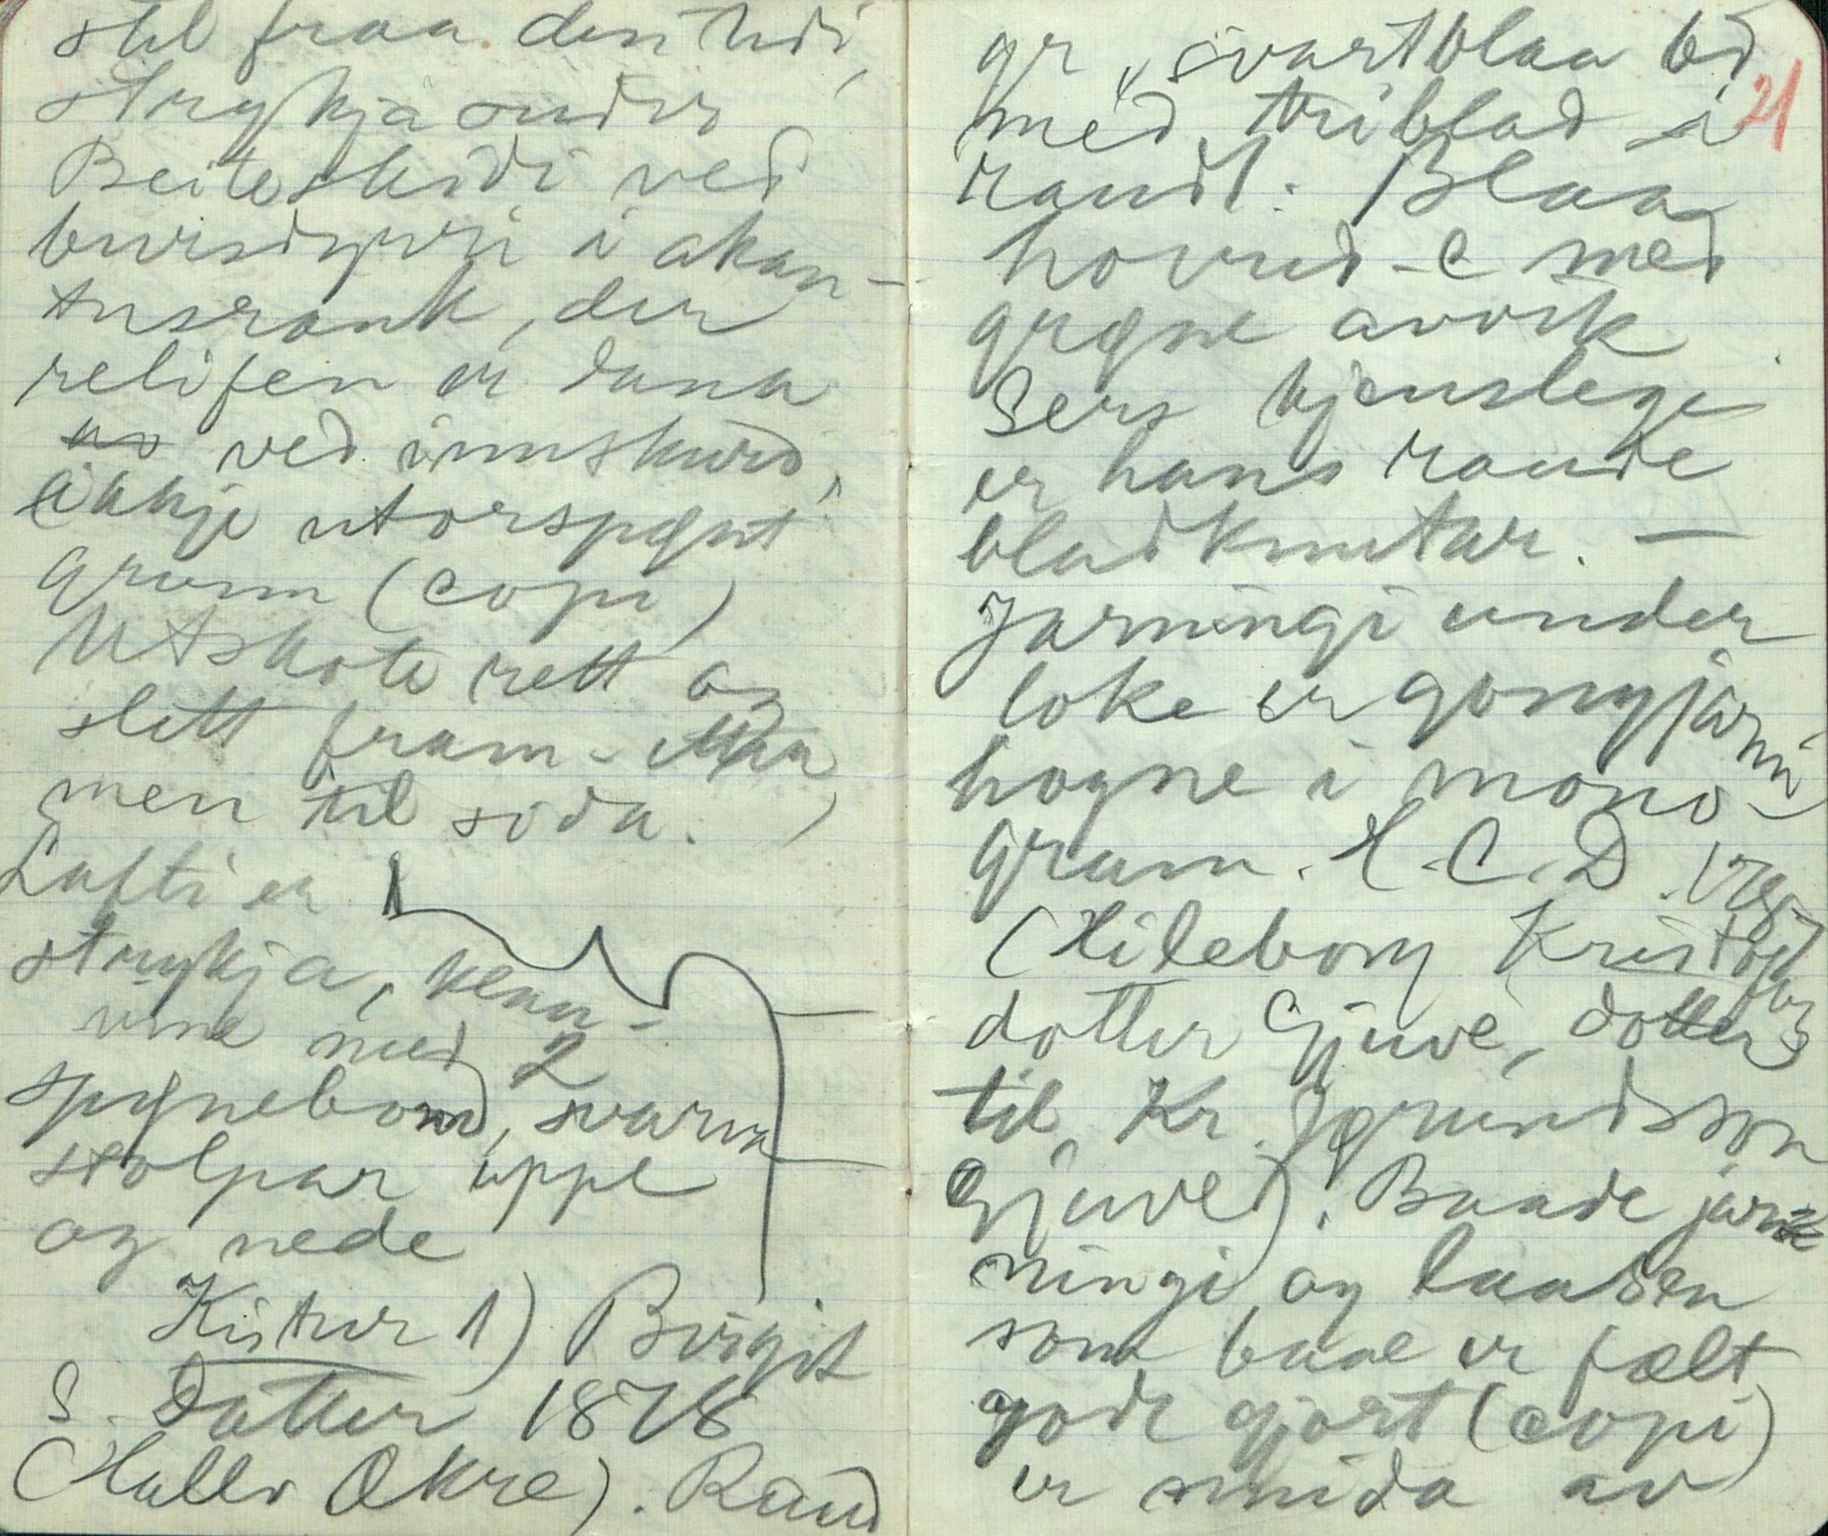 stil fraa den tidi,
strykja under
Beiteskidi ved
bursdyri i akan-
tusrank, der
relifen er dana
av ved innskurd,
ikkje utorspynt
grunn (copi)
Utskote rett og
slett fram - 
men til sida.
Lufti er
strykja, klau-
vine med 2
spynebond, svarva
stolpar uppe
og nede
Kistur 1) Birgit
S. Datter 1878
(Hallv Økre). Raud
gr, svartblaa bd
med triblad i
raudt. Blaa
hovud-c med
grøne avvik
Sers kjenslege
er hans raude
bladknutar. —
Jarningi under
loke er gongjarni
hogne i mono-
gram. H.C.D.
(Hileborg Kristof-
fers
dotter Gjuve, dotter
til Kr. Jørundsson
Gjuve). Baade jar-
ningi og laasen
som baae er fælt
gode gjort (copi)
er smida av
21